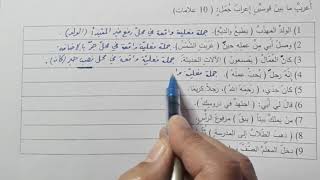 أعرب ما بين قوسين إعراب جُمَل: ( 10 علامات )
1) الولدُ المهذّبُ ( يطيعُ والديهِ). جملة فعلية واقعة في محلّ رفع خبر المبتدأ (الولد)
2) وصل أبي من عمله حينَ ( غربتِ الشّمسُ). جملة فعليّة واقعة في محلّ جرّ بالإضافة.
3) كانَ العمّالُ ( يصنعونَ ) الآلاتِ الحديثة. جملة فعليّة واقعة في محل نصب خبر (كان).
4) إنّهُ رجلٌ ( يُحبُّ عملَه ) جملة فعليّة وا
5) كانَ جدّي، ( رحمهُ اللهُ )، رجلًا كريمًا.
6) قالَ لي أبي: ( اجتهدْ في دروسِكَ ).
7) مرفوعُ الرأسِ.
8) ذهبَ الطّلّابُ إلى المدرسةِ
9) دخلَ المعلّمُ الصفَّ